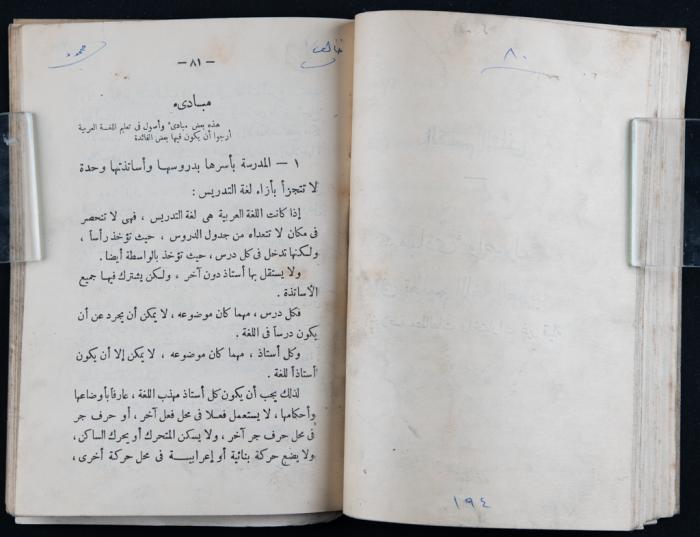 ٨٠
١٩٤
— ٨١ —
مبادىء
هذه بعض مبادىء وأصول فى تعليم اللغة العربية
أرجوا أن يكون فيها بعض الفائدة
١ — المدرسة بأسرها بدروسها وأساتذتها وحدة
لا تتجزأ بأزاء لغة التدريس :
إذا كانت اللغة العربية هى لغة التدريس ، فهى لا تنحصر
فى مكان لا تتعداه من جدول الدروس ، حيث تؤخذ رأساً ،
ولكنها تدخل فى كل درس ، حيث تؤخذ بالواسطة أيضاً .
ولا يستقل بها أستاذ دون آخر ، ولكن يشترك فيها جميع
الأساتذة .
فكل درس ، مهما كان موضوعه ، لا يمكن أن يجرد عن أن
يكون درساً فى اللغة .
وكل أستاذ ، مهما كان موضوعه ، لا يمكن إلا أن يكون
أستاذاً للغة .
لذلك يجب أن يكون كل أستاذ مهذب اللغة ، عارفاً بأوضاعها
وأحكامها ، لا يستعمل فعلا فى محل فعل آخر ، أو حرف جر
فى محل حرف جر آخر ، ولا يسكن المتحرك أو يحرك الساكن ،
ولا يضع حركة بنائية أو إعرابية فى محل حركة أخرى ،